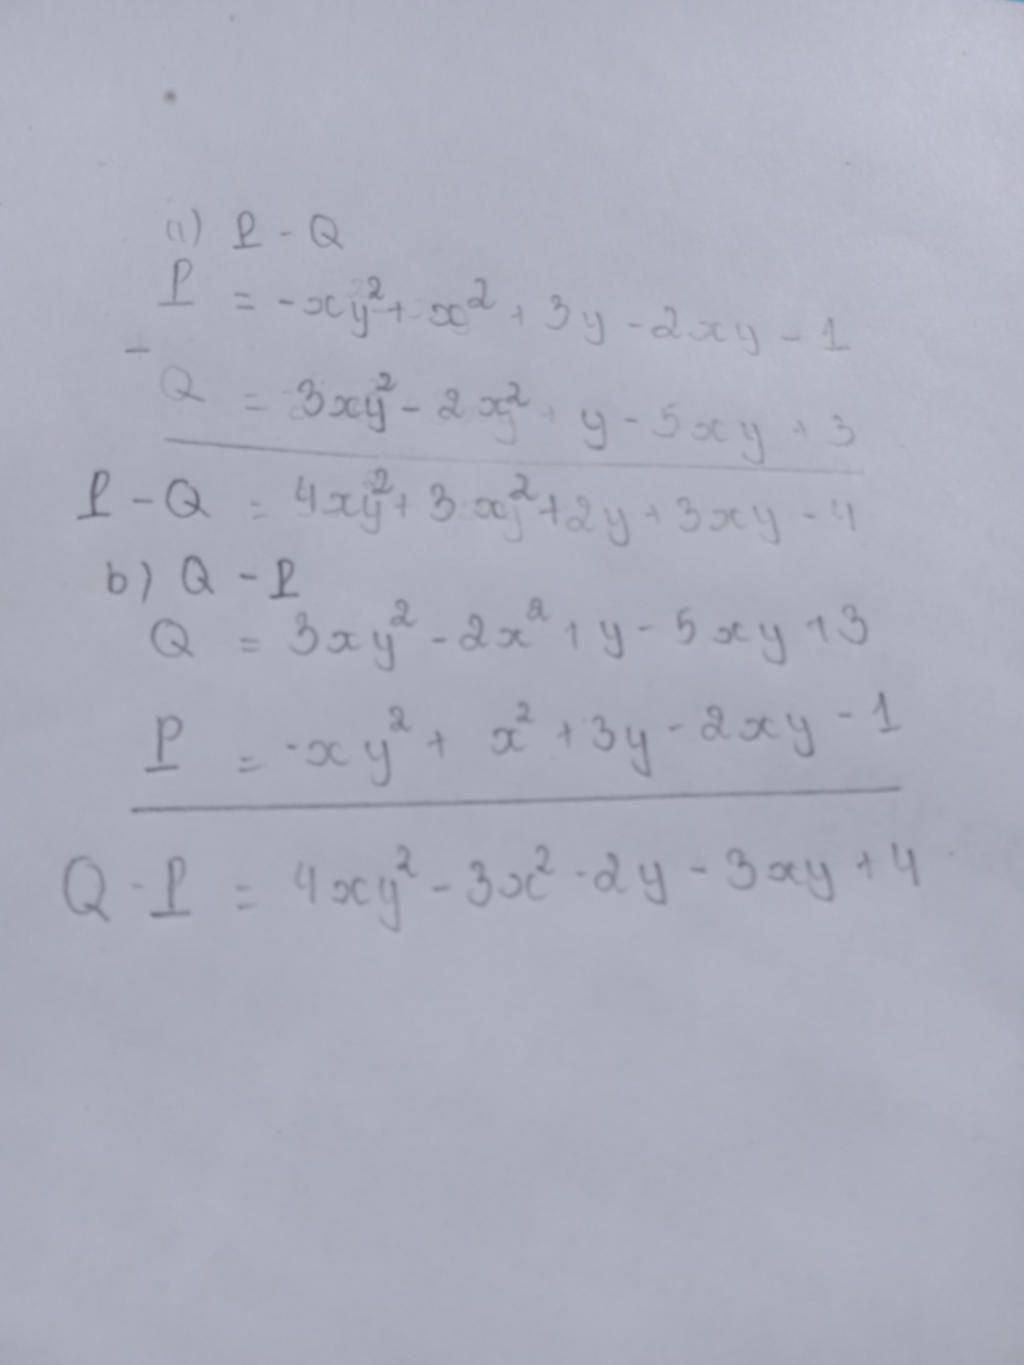 (i) P - Q
P = -xy² + x² + 3y - 2xy - 1
-
Q = 3xy² - 2x² + y - 5xy + 3
P - Q = 4xy² + 3x² + 2y + 3xy - 4
b) Q - P
Q = 3xy² - 2x² + y - 5xy + 3
P = -xy² + x² + 3y - 2xy - 1
Q - P = 4xy² - 3x² - 2y - 3xy + 4